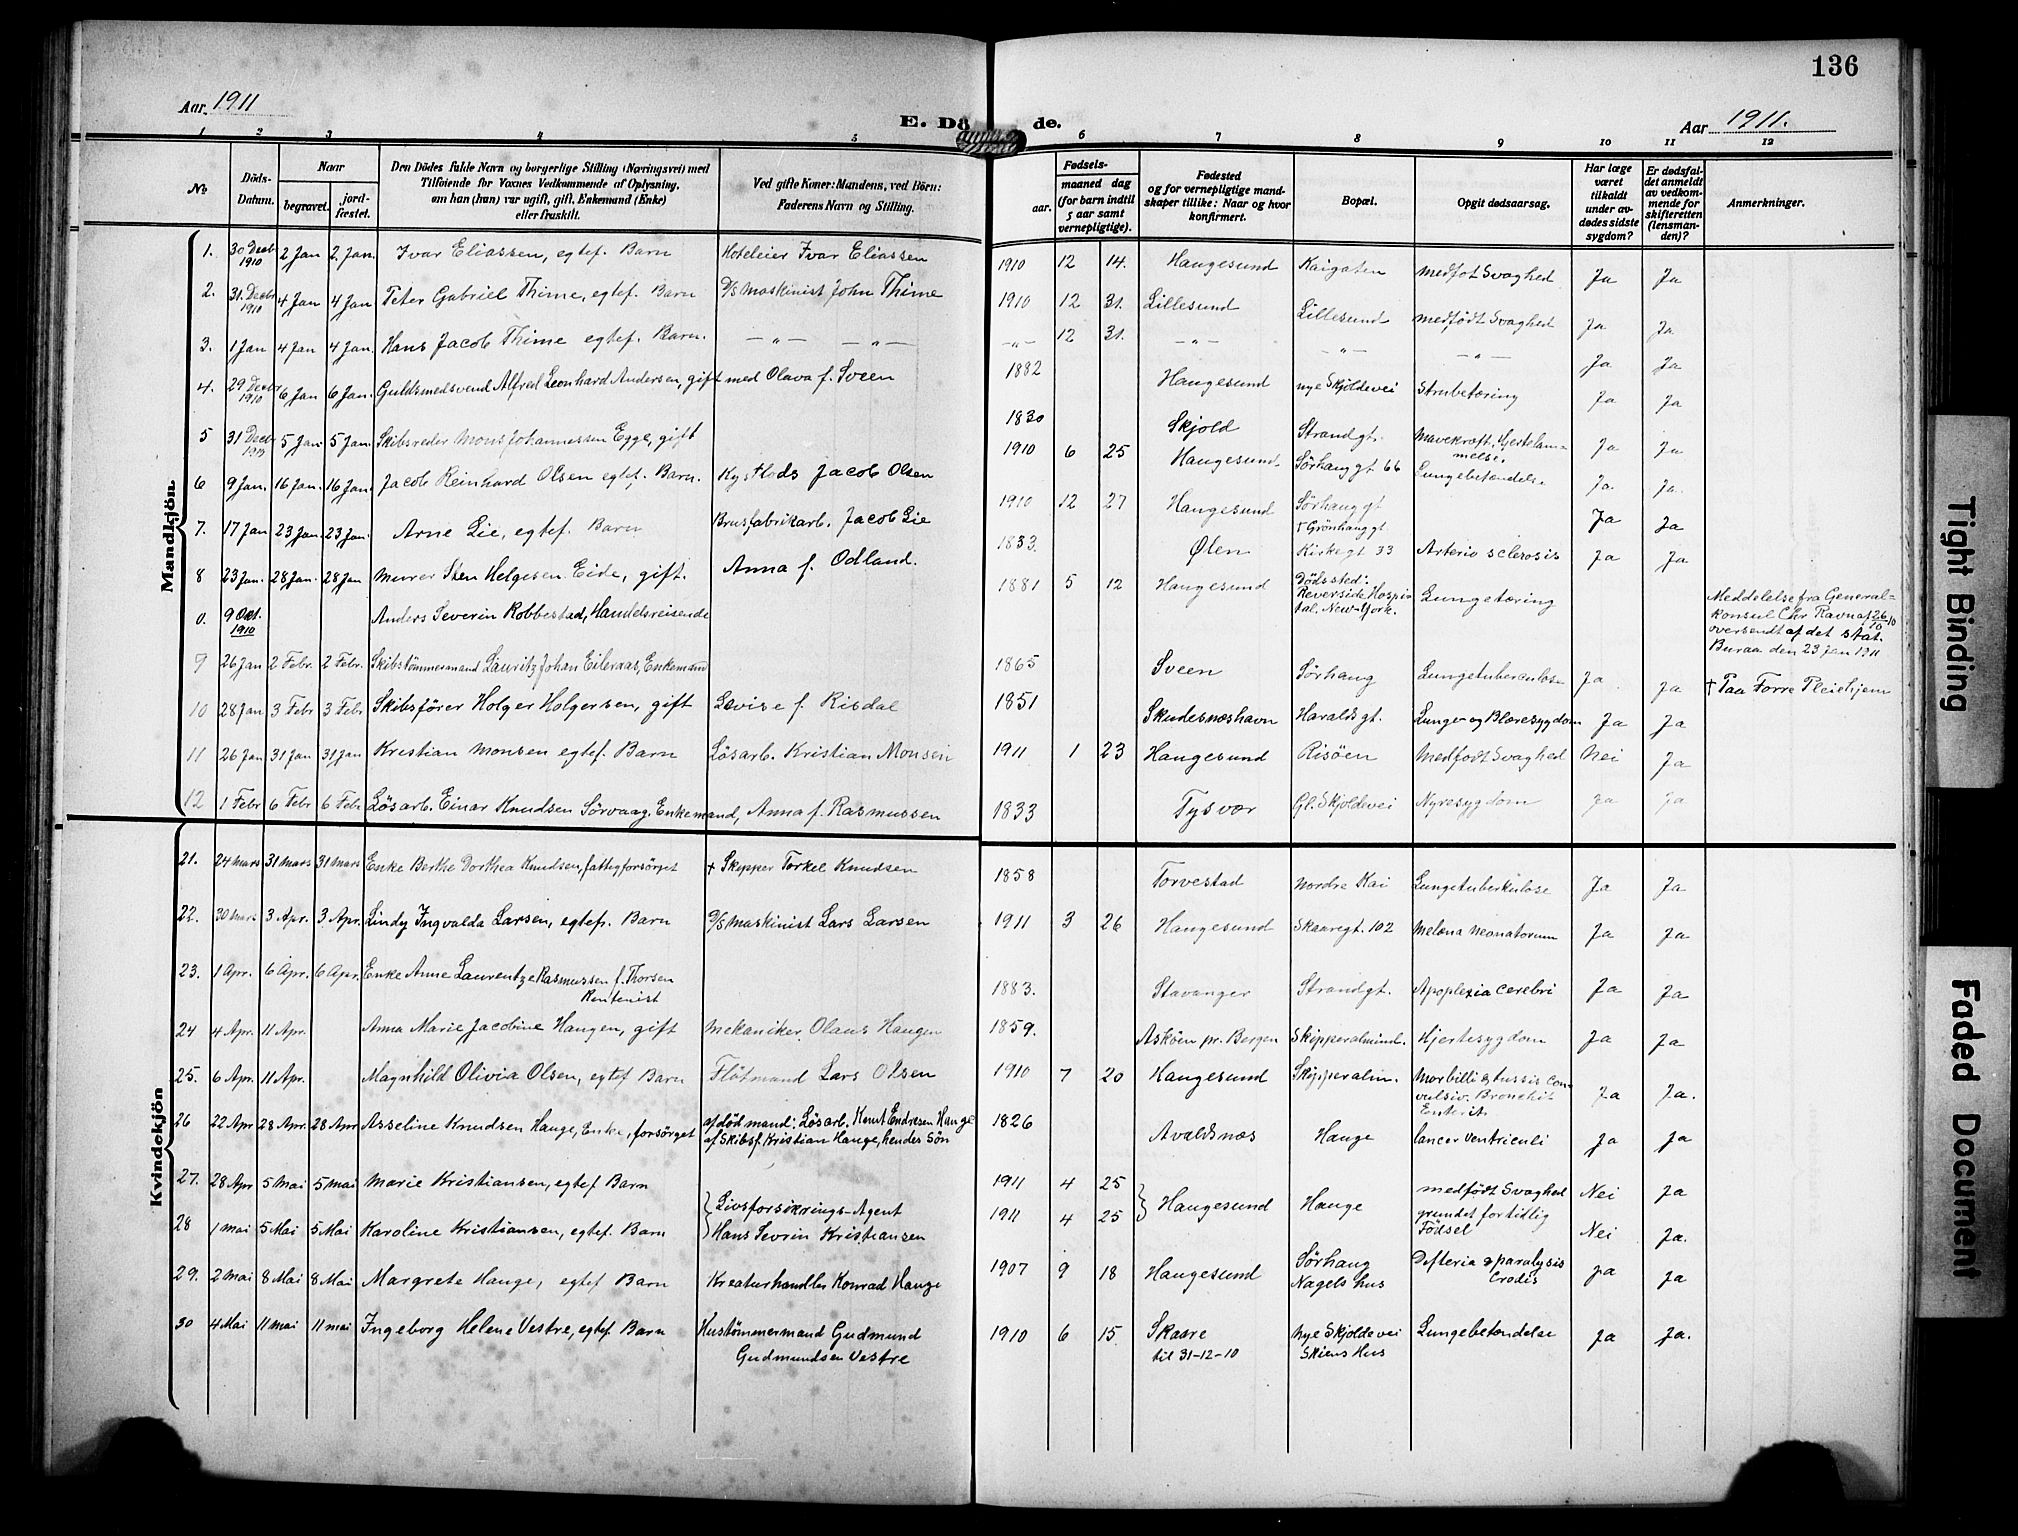 136
Aar 1911
E. Dö de.
Aar 1911.
1 2 3 4 5 6 7 8 9 10 11 12
No
Döds-Datum.
Naar
begravet.
jord-fæstet.
Den Dödes fulde Navn og borgerlige Stilling (Næringsvei) med
Tilföiende for Voxnes Vedkommende af Oplysning,
om han (hun) var ugift, gift, Enkemand (Enke)
eller fraskilt.
Ved gifte Koner: Mandens, ved Börn:
Faderens Navn og Stilling.
Fødsels-
aar.
maaned dag
(for barn indtil
5 aar samt
vernepligtige).
Fødested
og for vernepligtige mand-
skaper tillike: Naar og hvor
konfirmert.
Bopæl.
Opgit dødsaarsag.
Har læge
været
tilkaldt
under av-
dødes sidste
sygdom?
Er dødsfal-
det anmeldt
av vedkom-
mende for
skifteretten
(lensman-
den)?
Anmerkninger.
Mandkjön.
1. 30 Decbr 1910 2 Jan 2. Jan. Ivar Eliassen, egtef. Barn Hoteleier Ivar Eliassen 1910 12 14. Haugesund Kaigaten medføt Svaghed Ja Ja
2. 31. Decbr 1910 4 Jan 4 Jan Peter Gabriel Thime, egtef. Barn D/S Maskinist John Thime 1910 12 31. Lillesund Lillesund medfødt Svaghed Ja Ja
3. 1 Jan 4 Jan 4 Jan. Hans Jacob Thime egtef. Barn. — „ — — „ — — „ — 12 31. — „ — — „ — — „ — Ja Ja
4. 29 Decbr 1910 6 Jan 6 Jan. Guldsmedsvend Alfred Leonhard Andersen, gift med Olava f. Sveen 1882 Haugesund nye Skjoldevei Strubetæring Ja Ja
5 31 Decbr 1910 5 Jan. 5 Jan. Skibsreder Mons Johannessen Egge, gift 1830 Skjold Strandgt. Mavekræft. Hjertelam-
melse. Ja Ja
6 9 Jan. 16 Jan. 16 Jan. Jacob Reinhard Olsen egtef. Barn. Jacob Olsen 1910 6 25 Haugesund. Sørhauggt 66 Lungebetændelse Ja. Ja.
7. 17 Jan 23 Jan. 23 Jan. Arne Lie, egtef. Barn Brusfabrikarb. Jacob Lie 1910 12 27 Haugesund Sørhauggt
& Grønhauggt. Ja Ja
8 23 Jan. 28 Jan. 28 Jan Murer Sten Helgesen Eide, gift. Anna f. Odland. 1833. Ølen Kirkegt 33 Arterio sclerosis Ja Ja
0. 9 Okt. 1910 Anders Severin Robbestad, Handelsreisende 1881 5 12 Haugesund Dødssted:
Reverside Hospi-
tal. New-York. Lungetæring Meddelelse fra General-
konsul Chr Ravn af 26/10 10
oversendt af det stat.
Buraa den 23 Jan 1911
9 26 Jan 2 Febr. 2 Febr. Skibstømmermand Lauritz Johan Eileraas, Enkemand 1865 Sveen Sørhaug Lungetuberculose Ja Ja † Paa Førre Pleiehjem
10 28 Jan 3 Febr. 3 Febr Skibsfører Holger Holgersen, gift Lovise f. Risdal 1851 Skudesneshavn Haraldsgt. Lunge- og Blæresygdom Ja Ja
11 26 Jan 31 Jan 31 Jan Kristian Monsen egtef. Barn Løsarb. Kristian Monsen 1911 1 23 Haugesund Risøen Medfødt Svaghed Nei Ja
12 1 Febr 6 Febr 6 Febr Løsarb. Einar Knudsen Sørvaag. Enkemand, Anna f. Rasmussen 1833 Tysvær Gl. Skjoldevei Nyresygdom Ja Ja
Kvindekjön
21. 24 mars 31 mars 31 mars Enke Berthe Dorthea Knudsen, fattigforsørget † Skipper Torkel Knudsen 1858 Torvestad Nordre Kai Lungetuberkulose Ja Ja
22. 30 mars 3 Apr. 3 Apr. Lindy Ingvalda Larsen, egtef. Barn D/S Maskinist Lars Larsen 1911 3 26 Haugesund Skaaregt. 102 Melæna Neonatorum Ja Ja
23. 1 Apr. 6 Apr. 6 Apr. Enke Anne Laurentze Rasmussen f. Thorsen
Rentenist 1883. Stavanger Strandgt. Apoplexia Cerebri Ja Ja
24 4 Apr. 11 Apr. Anna Marie Jacobine Haugen, gift Mekaniker. Olaus Haugen 1859. Askøen pr. Bergen Skipperalmind. Hjertesygdom Ja Ja
25. 6 Apr. 11 Apr. Magnhild Olivia Olsen, egtef Barn Fløtmand Lars Olsen 1910 7 20 Haugesund Skipperalm. Morbilli & tussis Con-
vulsiv. Bronchit
Enterit. Ja Ja.
26 22 Apr 28 Apr. 28 Apr Asseline Knudsen Hauge, Enke, forsørget af død mand: Løsarb. Knut Endresen Hauge
af Skibsf. Kristian Hauge, hendes Søn 1826 Avaldsnæs Hauge Cancer Ventriculi Ja Ja
27. 28 Apr 5 Mai 5 Mai Marie Kristiansen, egtef. Barn Livsforsikrings-Agent
Hans Sevrin Kristiansen 1911 4 25 Haugesund Hauge medfødt Svaghed
grundet for tidlig
Födsel Nei Ja
28 1 mai 5 Mai 5 Mai Karoline Kristiansen, egtef. Barn 1911 4 25 Nei Ja.
29. 2 mai 8 Mai 8 Mai Margrete Hauge, egtef Barn Kreaturhandler Konrad Hauge 1907 9 18 Haugesund Sørhaug
Nagels hus Difteria & paralysis
Cordis Ja Ja
30 4 Mai 11 mai 11 mai Ingeborg Helene Vestre, egtef. Barn Hustømmermand Gudmund
Gudmundsen Vestre 1910 6 15 Skaare
til 31-12-10 Nye Skjoldevei
Skiens Hus Lungebetændelse Ja Ja.
Tight Binding
Faded Document